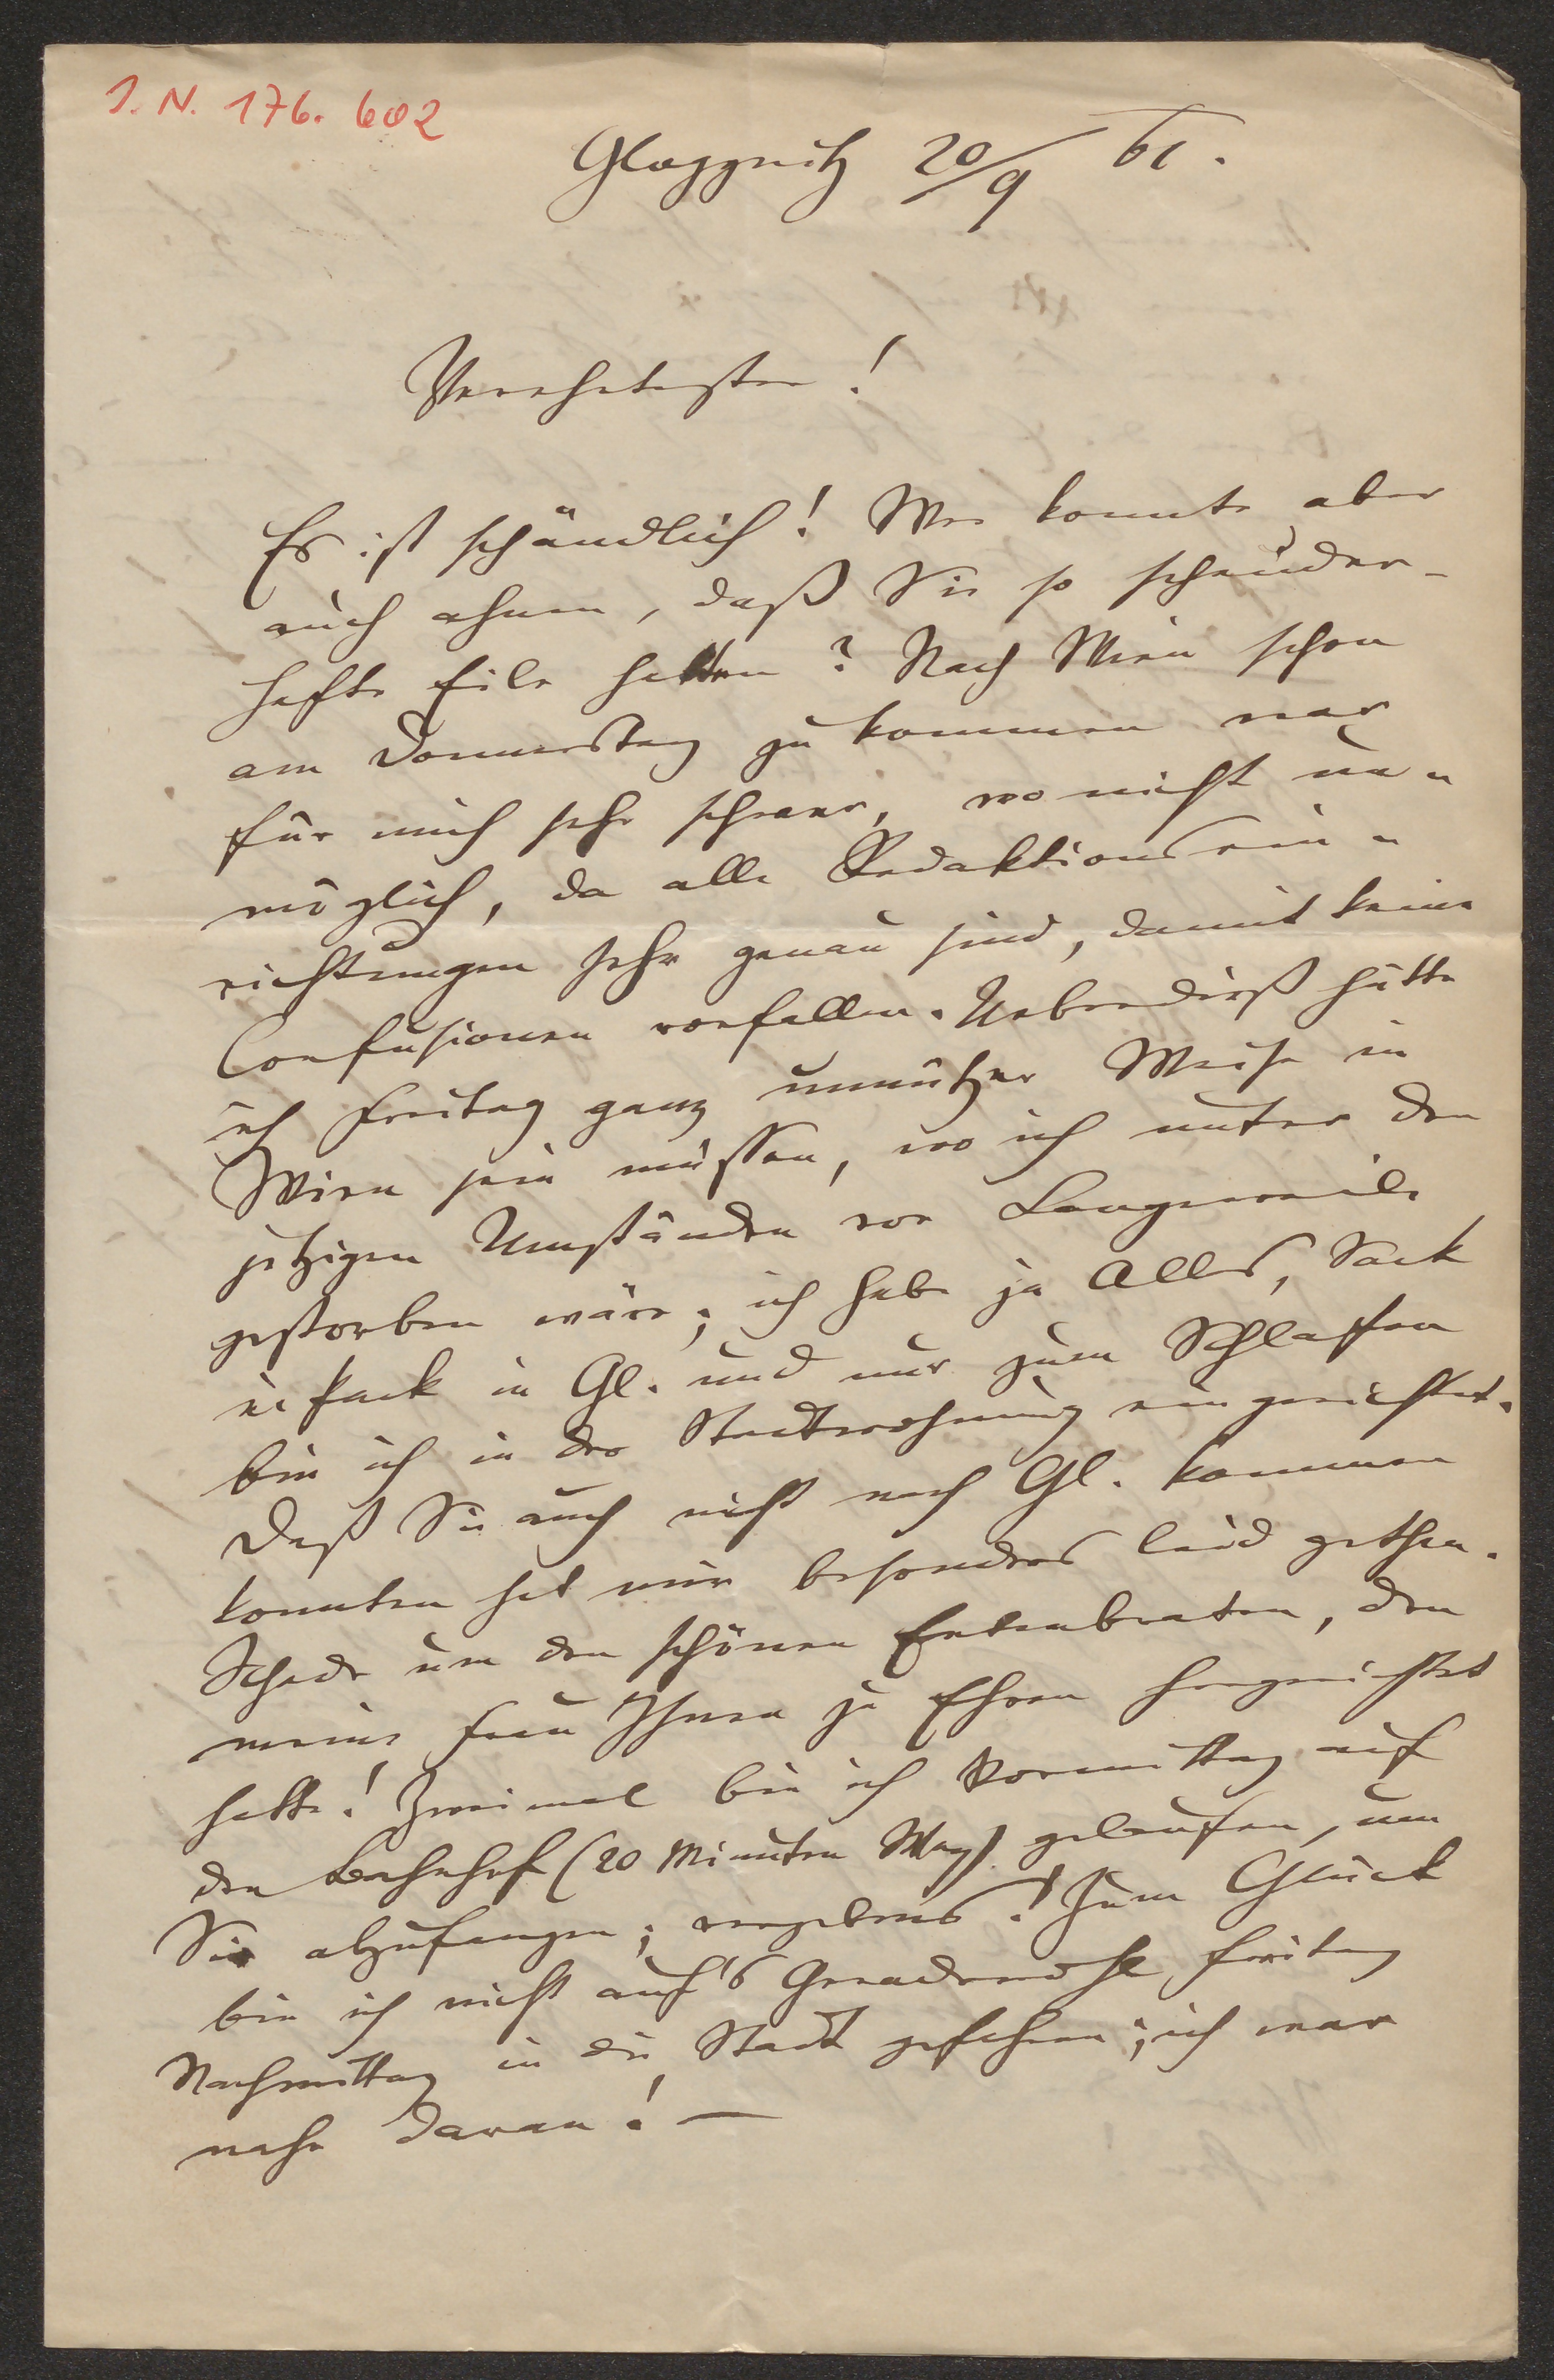 I. N. 176.602
Gloggnitz 20/9 61.
Verehrtester!
Es ist schändlich! Wer konnte aber
auch ahnen, daß Sie so schauder-
hafte Eile hatten? Nach Wien schon
am Donnerstag zu kommen war
für mich sehr schwer, wo nicht un-
möglich, da alle Redaktionsein-
richtungen sehr genau sind, damit keine
Confusionen vorfallen. Ueberdieß hätte
ich Freitag ganz unnützer Weise in
Wien sein müssen, wo ich unter den
jetzigen Umständen vor Langerweile
gestorben wäre; ich habe ja Alles, Sack
u Pack in Gl. und nur zum Schlafen
bin ich in der Stadtwohnung eingerichtet.
Daß Sie auch nicht nach Gl. kommen
konnten hat mir besonders leid gethan.
Schade um den schönen Entenbraten, den
meine Frau Ihnen zu Ehren hergerichtet
hatte! Zweimal bin ich Vormittag auf
den Bahnhof (20 Minuten Weg) gelaufen, um
Sie abzufangen; vergebens! Zum Glück
bin ich nicht auf's Geradewohl Freitag
Nachmittag in die Stadt gefahren; ich war
nahe daran! —